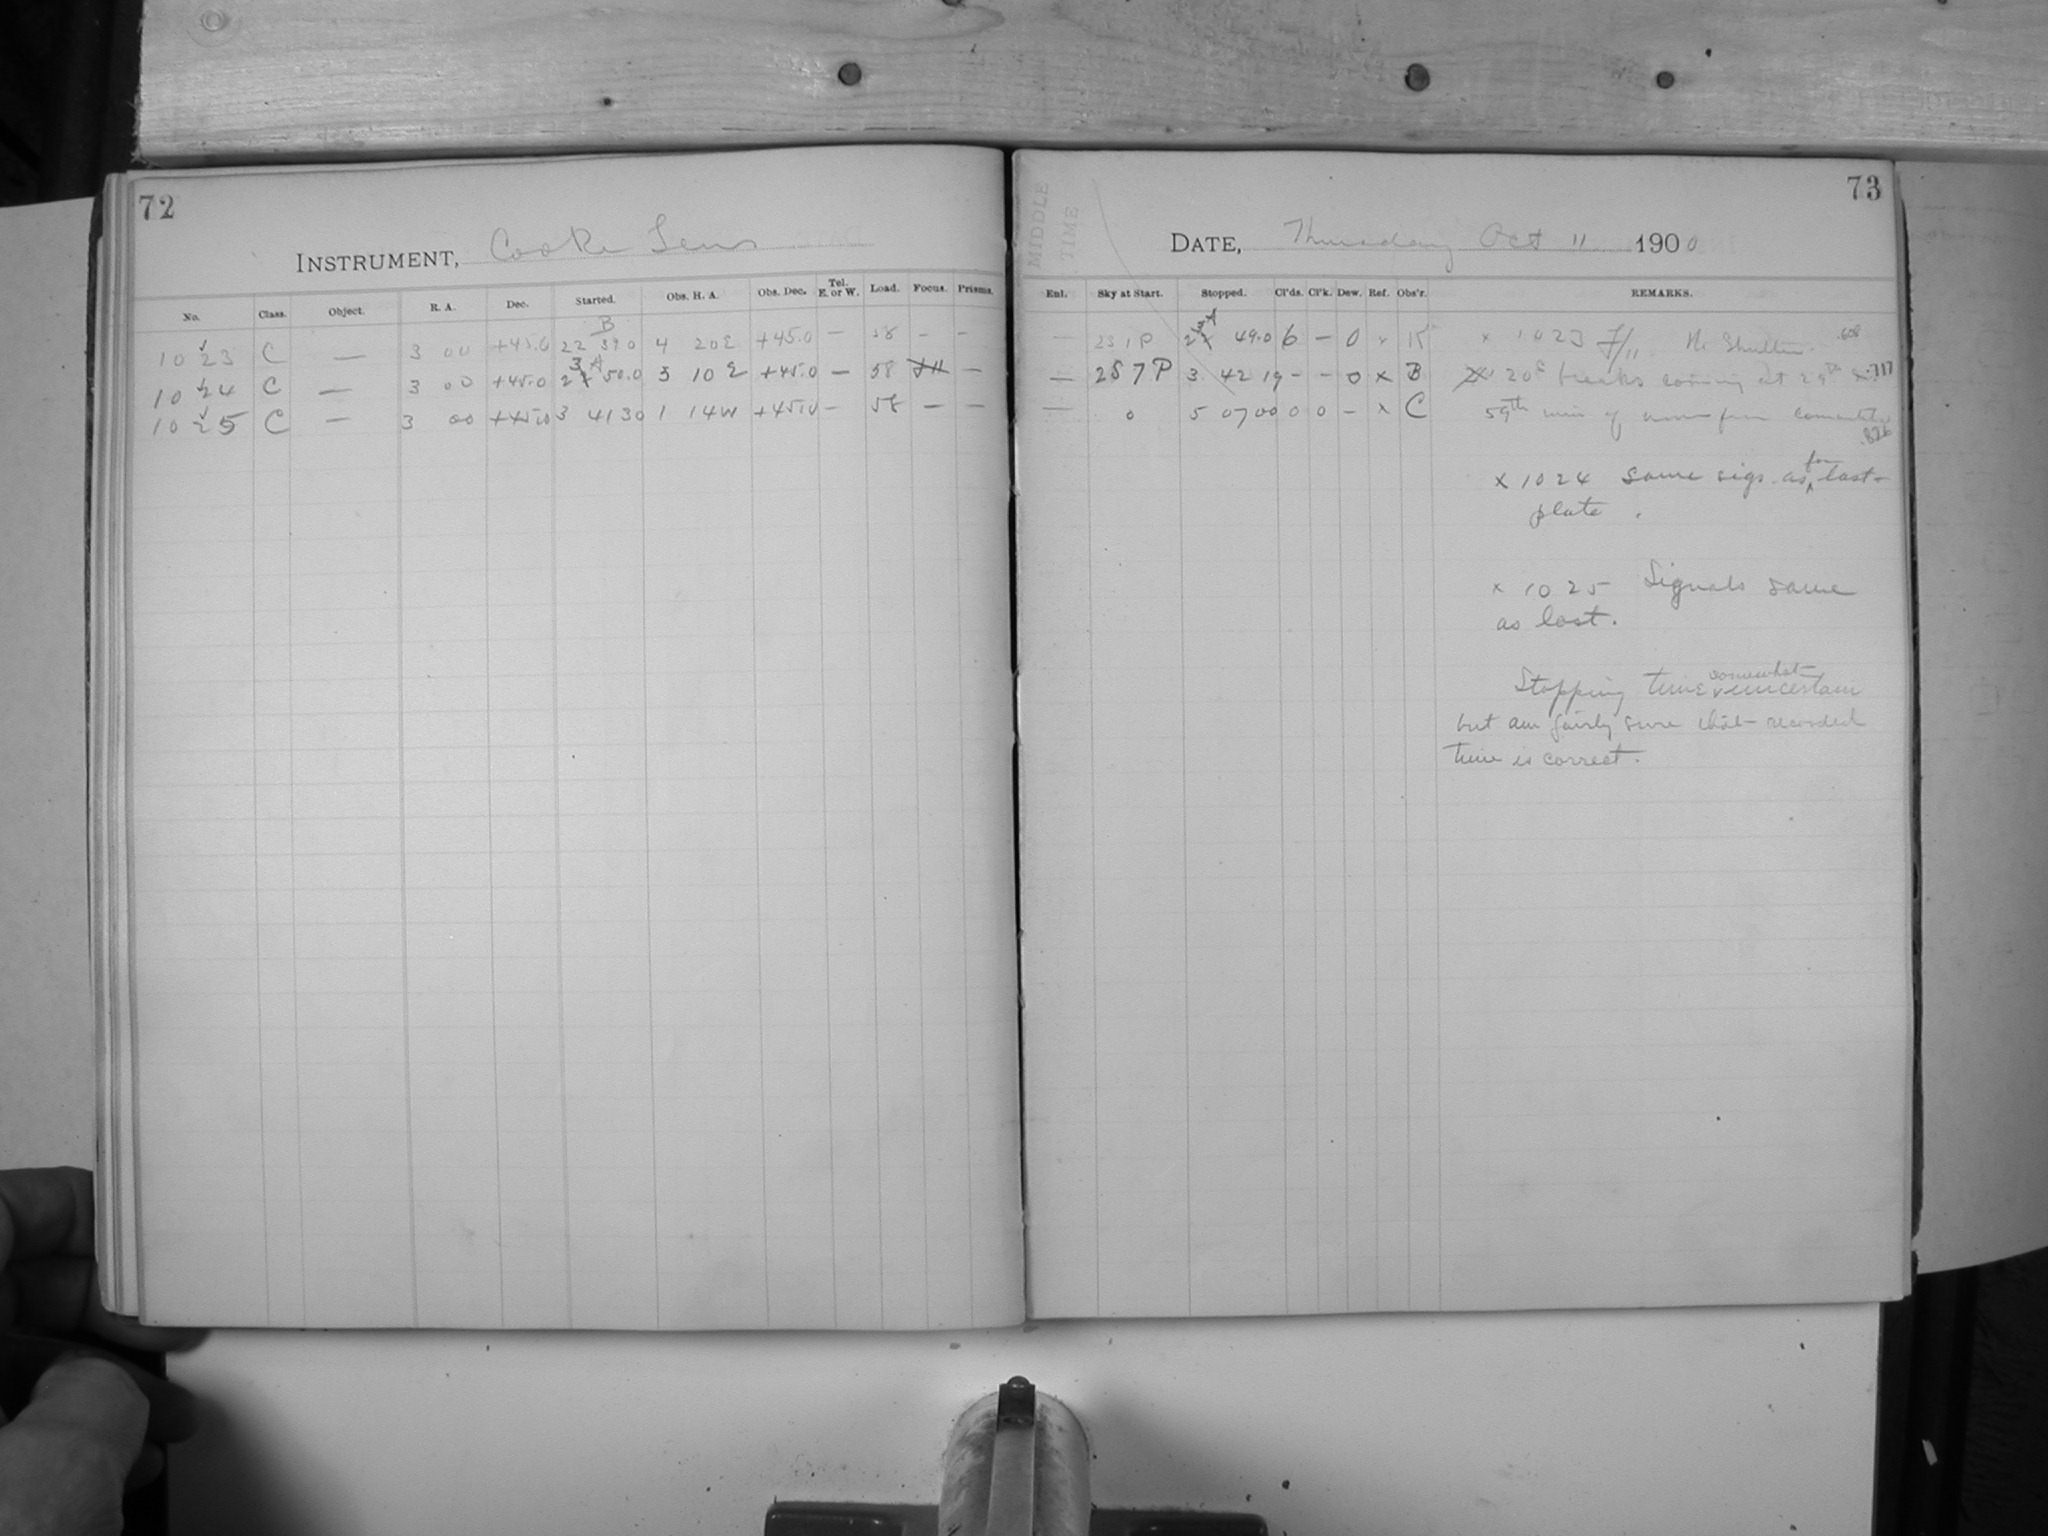 72
INSTRUMENT, Cooke Lens
No. Class. Object. R. A. Dec. Started. Obs. H. A. Obs. Dec. Tel. E. or W. Load. Focus. Prisms.
B
10 23 C — 3 00 +45.0 22 39.0 4 20 E +45.0 — 58 — —
3 A
10 24 C — 3 00 +45.0 50.0 3 10 E +45.0 — 58 —
10 25 C — 3 00 +45.0 3 41 30 1 14 W +45.0 — 58 — —
73
MIDDLE TIME
DATE, Thursday Oct 11 1900
Enl. Sky at Start. Stopped. Cl'ds. Cl'k. Dew. Ref. Obs'r. REMARKS.
— 2S 1 P 49.0 6 — 0 x x 1023 F/11 Shutter. .608
— 2S 7 P 3 42 19 - - 0 x B 20 breaks coming at 29th & .717
— 0 5 07 00 0 0 - x C 59th min of from
.826
x 1024 Same sigs. as for last
plate.
x 1025 Signals same
as last.
Stopping time somewhat uncertain
but am fairly sure that recorded
time is correct.